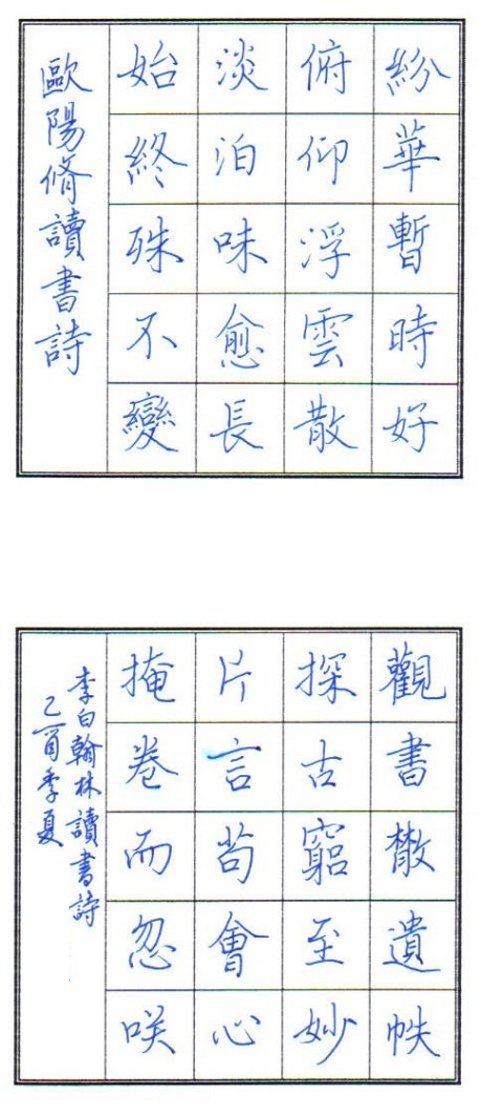 紛華暫時好
俯仰浮雲散
淡泊味愈長
始終殊不變
歐陽脩讀書詩
觀書㪚遺帙
探古竆至妙
片言苟會心
掩卷而忽咲
李白翰林讀書詩
乙酉季夏